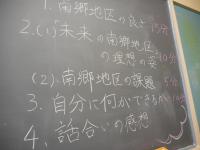 1. 南郷地区の良さ 15分
2.(1)「未来の南郷地区
の理想の姿 10分
(2). 南郷地区の課題 5分
3. 自分に何ができるか
4. 話合いの感想